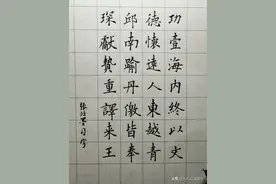 功壹海内終以文
德懷遠人東越青
邱南踰丹徼皆奉
琛獻贄重譯来王